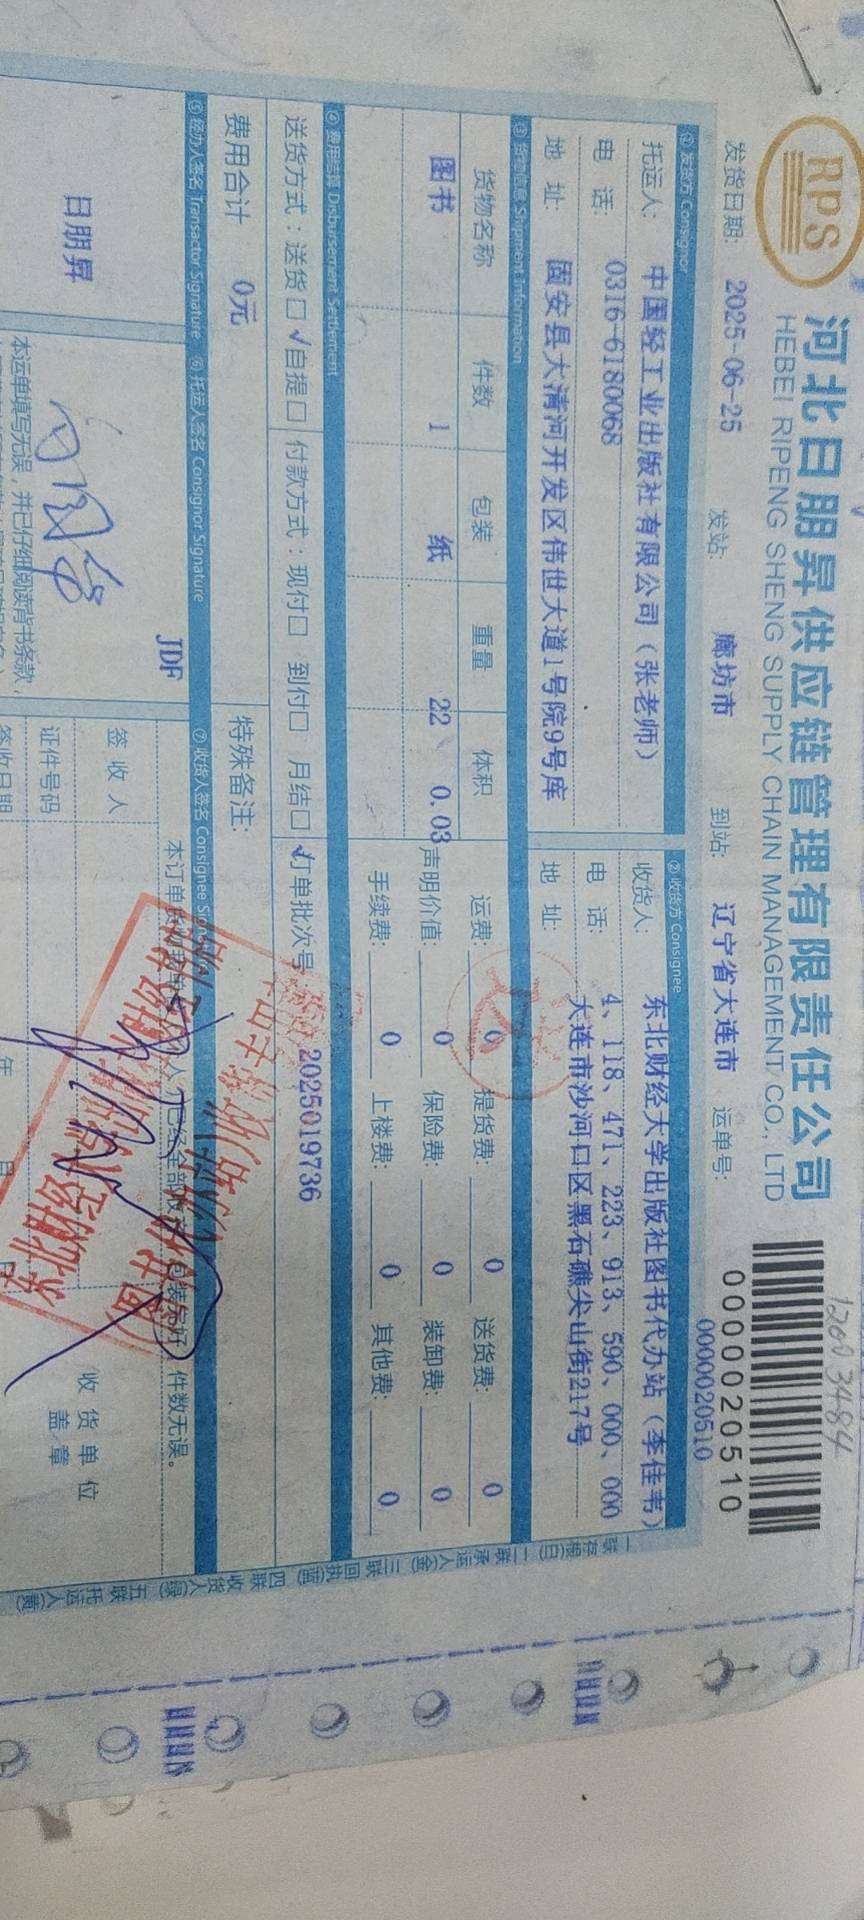 RPS
河北日朋昇供应链管理有限责任公司
HEBEI RIPENG SHENG SUPPLY CHAIN MANAGEMENT CO., LTD
12003484
0000020510
发货日期: 2025-06-25 发站: 廊坊市 到站: 辽宁省大连市 运单号: 0000020510
① 发货方 Consignor
② 收货方 Consignee
托运人: 中国轻工业出版社有限公司（张老师）
收货人: 东北财经大学出版社图书代办站（李佳韦）
电 话: 0316-6180068
电 话: 4、118、471、223、913、590、000、000
地 址: 固安县大清河开发区伟世大道1号院9号库
地 址: 大连市沙河口区黑石礁尖山街217号
③ 货物信息 Shipment Information
货物名称 件数 包装 重量 体积
图书 1 纸 22 0.03
运费: 0 提货费: 0 送货费: 0
声明价值: 0 保险费: 0 装卸费: 0
手续费: 0 上楼费: 0 其他费: 0
④ 费用结算 Disbursement Settlement
送货方式：送货□ √自提□ 付款方式：现付□ 到付□ 月结□ √订单批次号 2025019736
费用合计 0元
特殊备注:
⑤ 经办人签名 Transactor Signature ⑥ 托运人签名 Consignor Signature
⑦ 收货人签名 Consignee
JDF
日朋昇
件数无误。
签 收 人
证件号码
签收日期
年
收 货 单 位
盖 章
本运单填写无误，并已仔细阅读背书条款，
一联存根(白) 二联承运人(金) 三联回执(蓝) 四联收货人(绿) 五联托运人(黄)